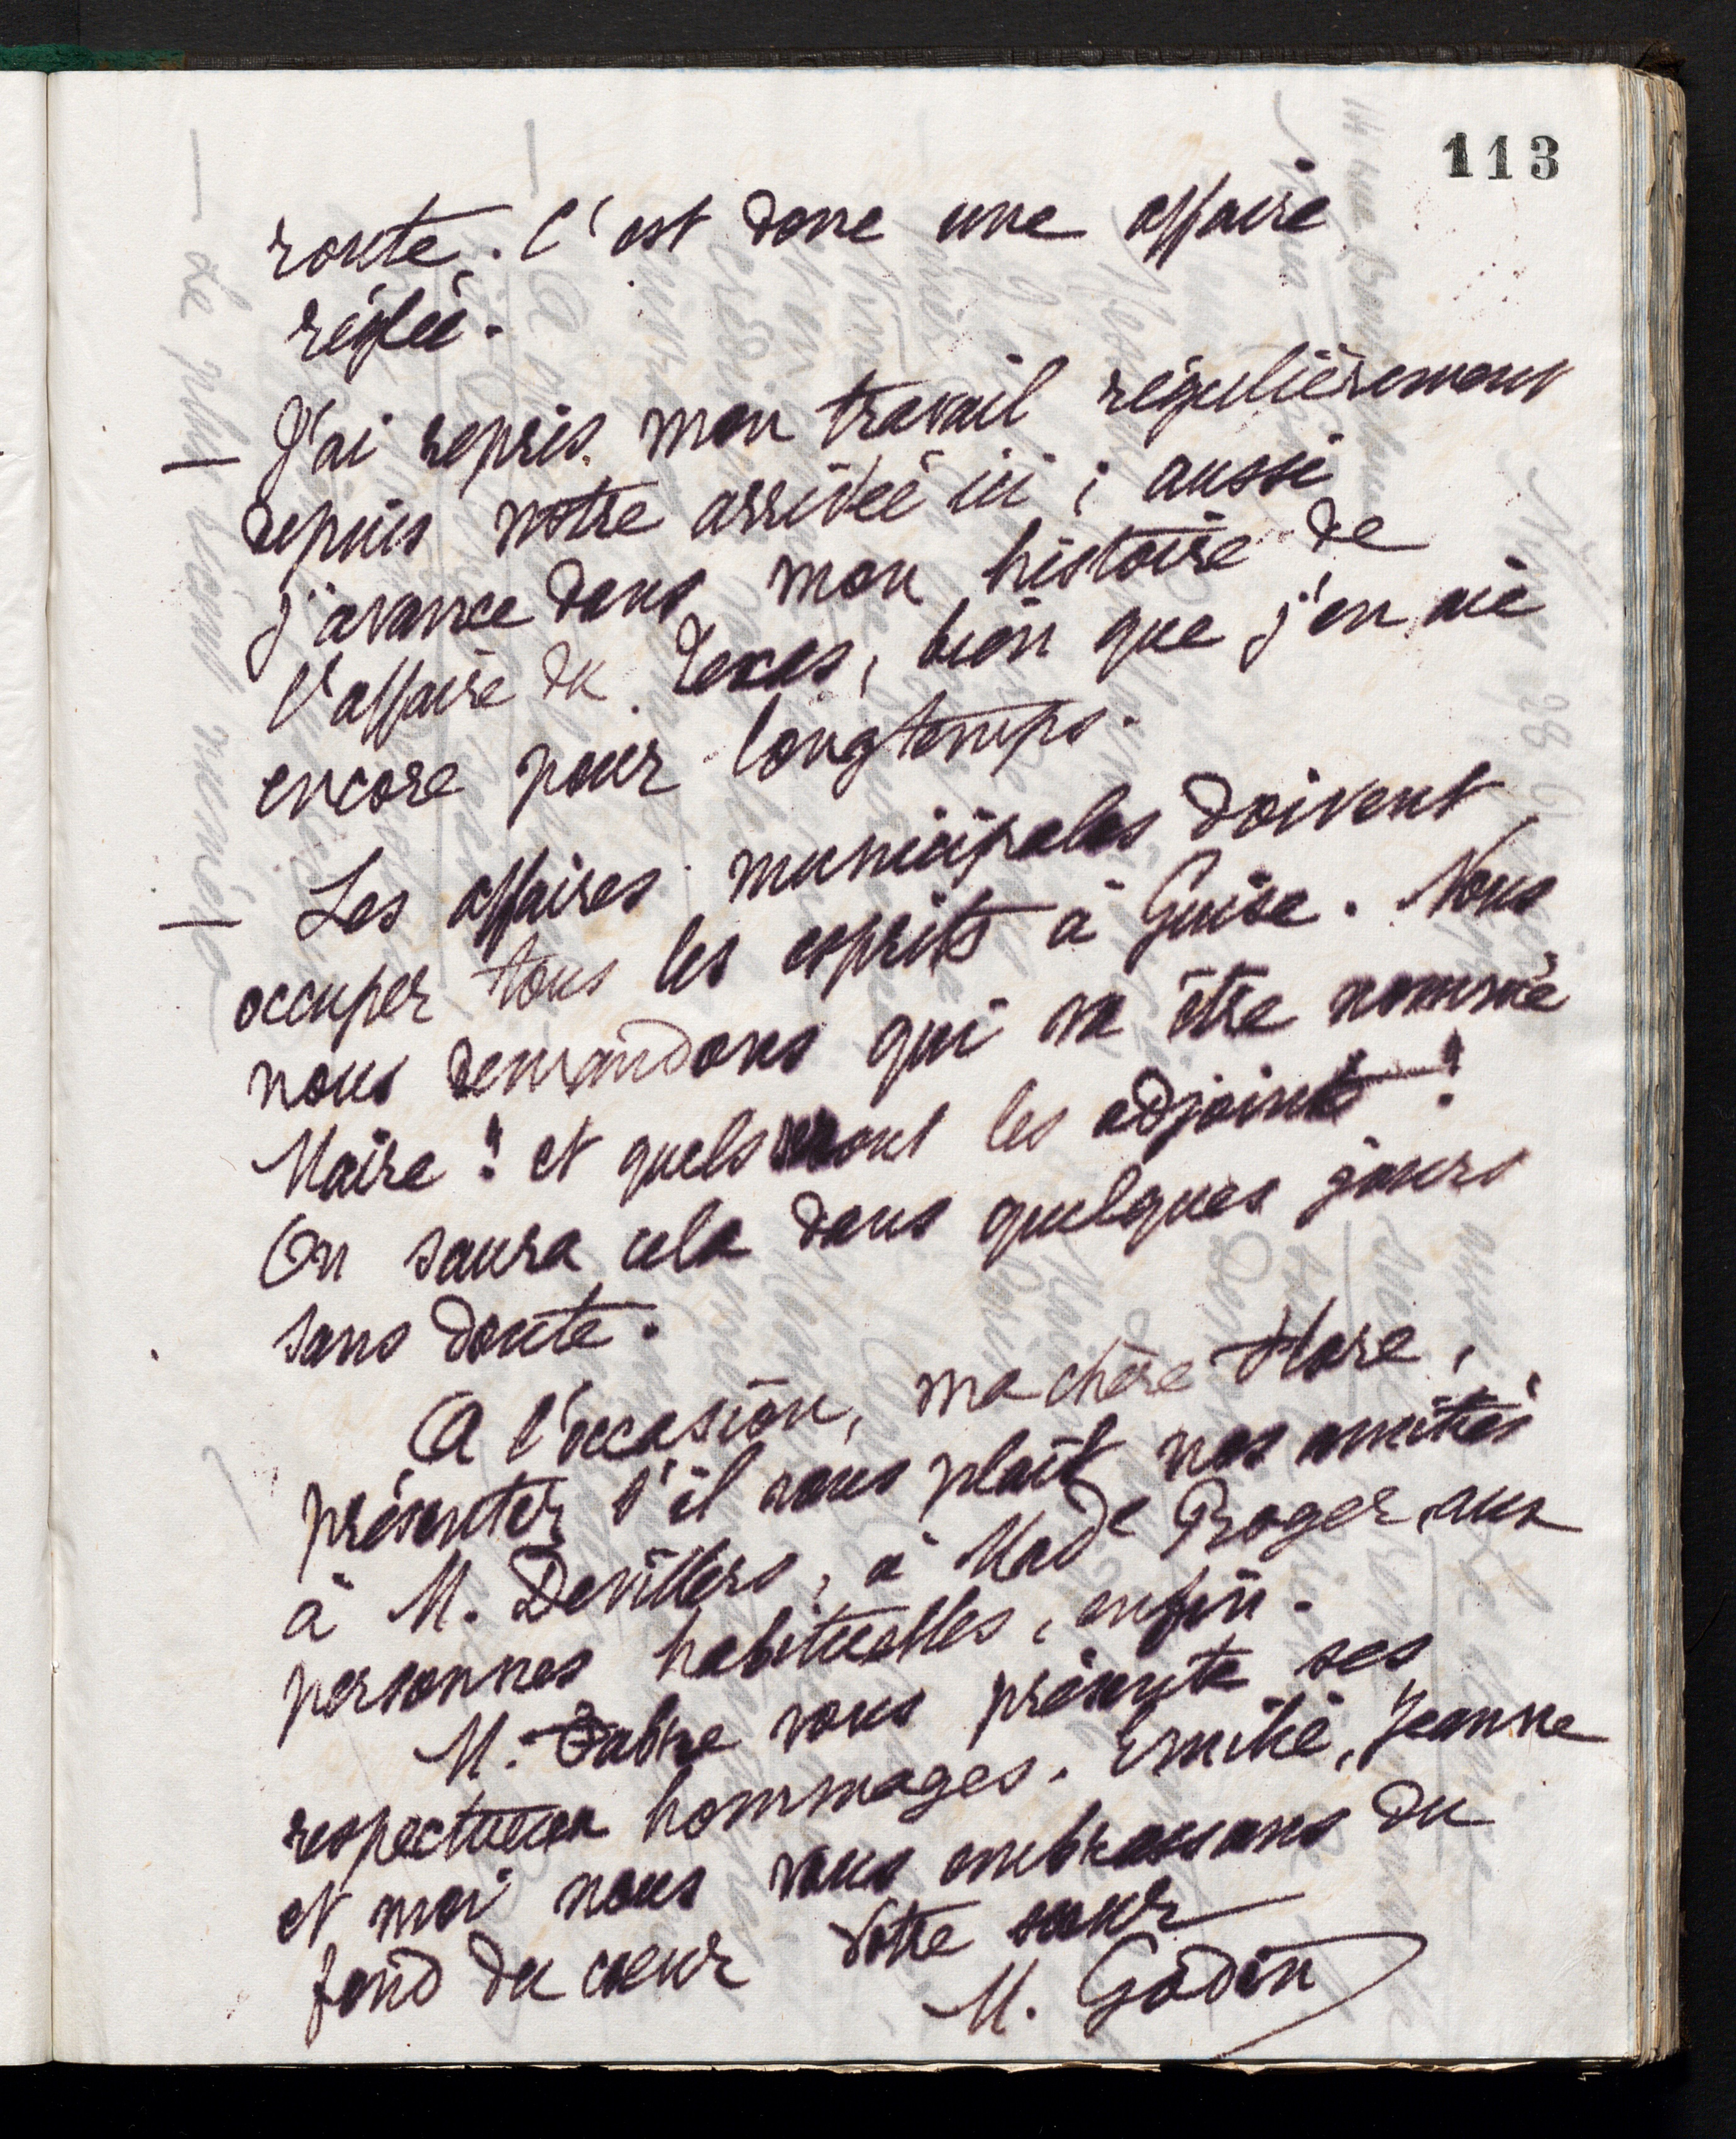 113
route. C'est donc une affaire
réglée.
— J'ai repris mon travail régulièrement
depuis notre arrivée ici ; aussi
j'avance dans mon histoire de
l'affaire du Texas, bien que j'en aie
encore pour longtemps.
— Les affaires municipales doivent
occuper tous les esprits à Guise. Nous
nous demandons qui va être nommé
Maire ? et quels seront les adjoints ?
On saura cela dans quelques jours
sans doute.
A l'occasion, ma chère Flore,
présentez s'il vous plaît nos amitiés
à M. Devillers, à Made Proger, aux
personnes habituelles, enfin.
M. Fabre vous présente ses
respectueux hommages. Emilie, Jeanne
et moi nous vous embrassons du
fond du cœur Votre sœur
M. Godin